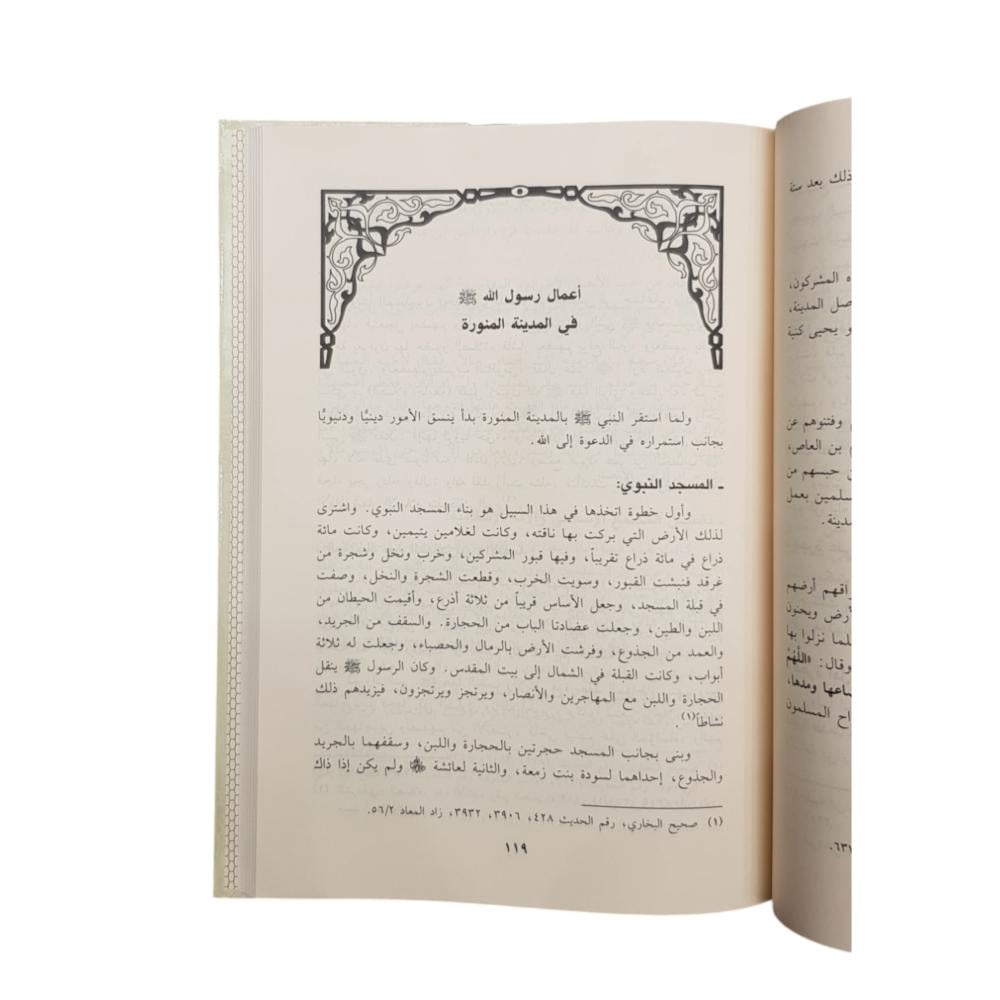 ذلك بعد سنة
المشركون،
صل المدينة،
و يحيى كنية
وفتنوهم عن
م بن العاص،
ن حبسهم من
سلمين بعمل
دينة.
راقهم أرضهم
لأرض ويحنون
لما نزلوا بها
وقال: «اللَّهُمَّ
ساعها ومدها،
اح المسلمون
٦٣٧.
أعمال رسول الله ﷺ
في المدينة المنورة
ولما استقر النبي ﷺ بالمدينة المنورة بدأ ينسق الأمور دينيًّا ودنيويًّا
بجانب استمراره في الدعوة إلى الله.
ـ المسجد النبوي:
وأول خطوة اتخذها في هذا السبيل هو بناء المسجد النبوي. واشترى
لذلك الأرض التي بركت بها ناقته، وكانت لغلامين يتيمين، وكانت مائة
ذراع في مائة ذراع تقريباً، وفيها قبور المشركين، وخرب ونخل وشجرة من
غرقد فنبشت القبور، وسويت الخرب، وقطعت الشجرة والنخل، وصفت
في قبلة المسجد، وجعل الأساس قريباً من ثلاثة أذرع، وأقيمت الحيطان من
اللبن والطين، وجعلت عضادتا الباب من الحجارة. والسقف من الجريد،
والعمد من الجذوع، وفرشت الأرض بالرمال والحصباء، وجعلت له ثلاثة
أبواب، وكانت القبلة في الشمال إلى بيت المقدس. وكان الرسول ﷺ ينقل
الحجارة واللبن مع المهاجرين والأنصار، ويرتجز ويرتجزون، فيزيدهم ذلك
نشاطاً(١).
وبنى بجانب المسجد حجرتين بالحجارة واللبن، وسقفهما بالجريد
والجذوع، إحداهما لسودة بنت زمعة، والثانية لعائشة ولم يكن إذا ذاك
(١) صحيح البخاري، رقم الحديث ٤٢٨، ٣٩٠٦، ٣٩٣٢، زاد المعاد ٥٦/٢.
١١٩